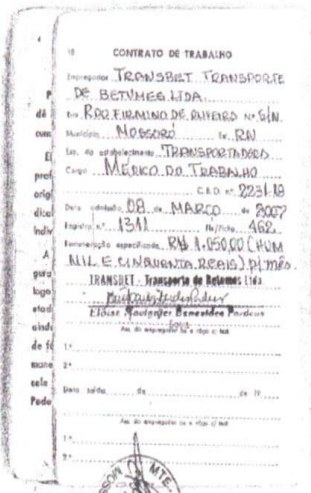 10 CONTRATO DE TRABALHO
Empregador TRANSBET TRANSPORTE
DE BETUMES LTDA.
Rua FIRMINO DE nº S/N.
Município MOSSORÓ Est. RN
Esp. do estabelecimento TRANSPORTADORA
Cargo MÉDICO DO TRABALHO
C.B.O. nº 2231-18
Data admissão 08 de MARÇO de 2007
Registro nº 1311 Fls/Ficha 462
Remuneração especificada R$ 1.050,00 (HUM
MIL E CINQUENTA REAIS) P/ MÊS.
TRANSBET - Transporte de Betumes Ltda
Ass. do empregador ou a rogo c/ test
1ª
2ª
Data saída de de 19
Ass. do empregador ou a rogo c/ test
1ª
2ª
MTE